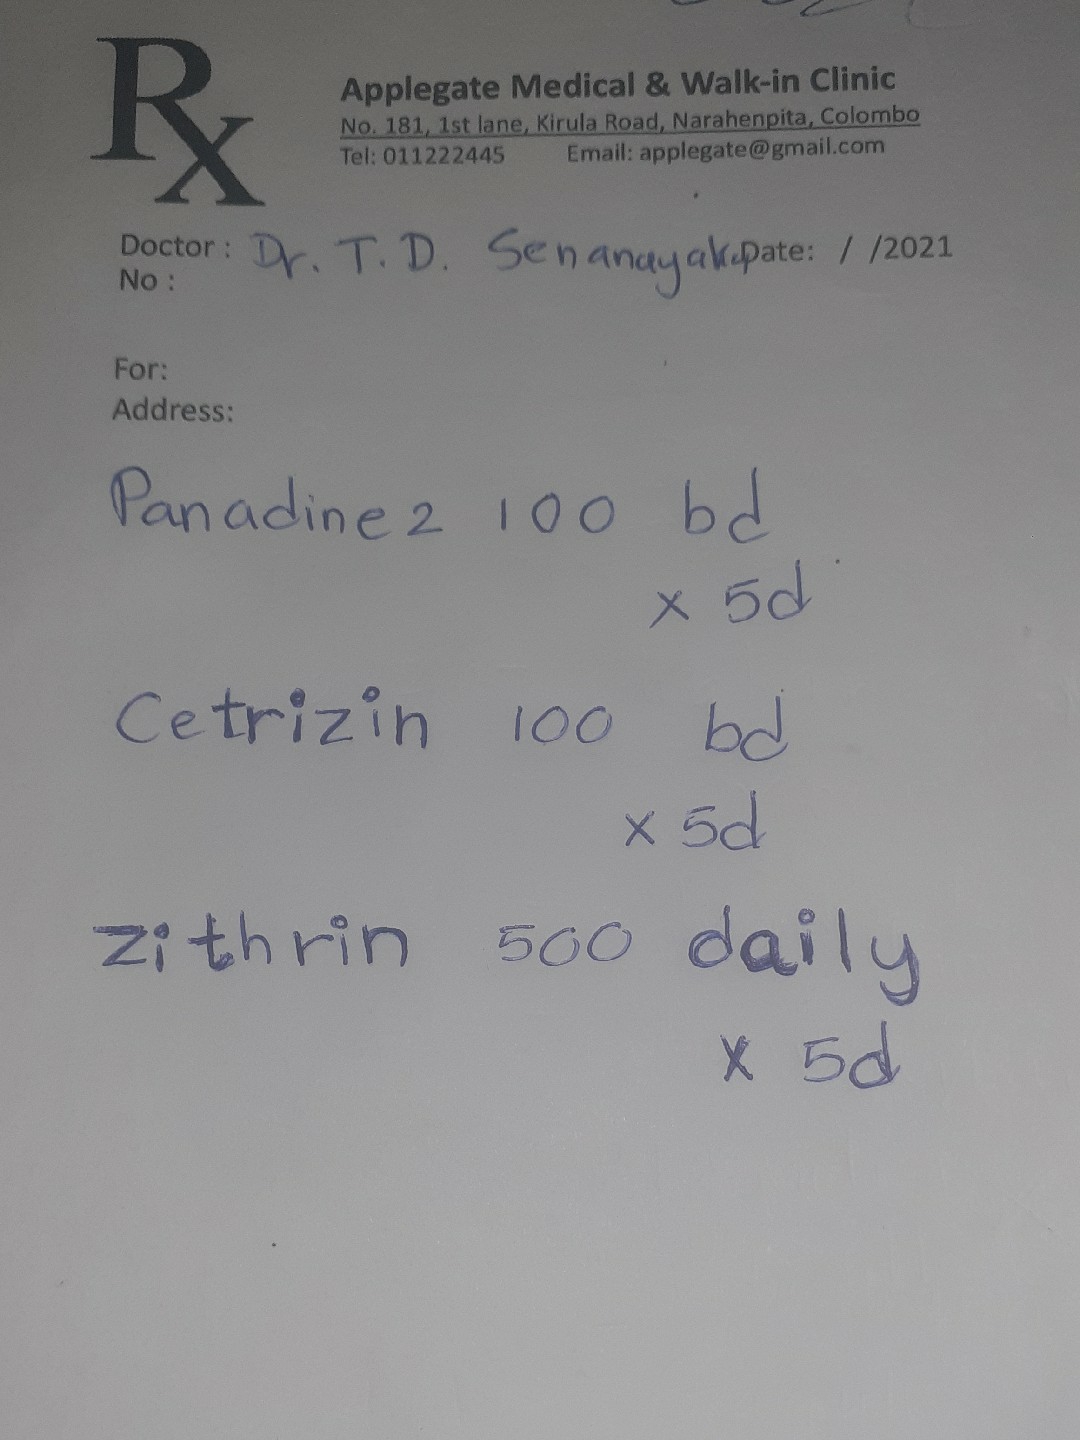 Rx
Applegate Medical & Walk-in Clinic
No. 181, 1st lane, Kirula Road, Narahenpita, Colombo
Tel: 011222445 Email: applegate@gmail.com
Doctor : Dr. T. D. Senanayake Date: / /2021
No :
For:
Address:
Panadine 2 100 bd
x 5d
Cetrizin 100 bd
x 5d
Zithrin 500 daily
x 5d